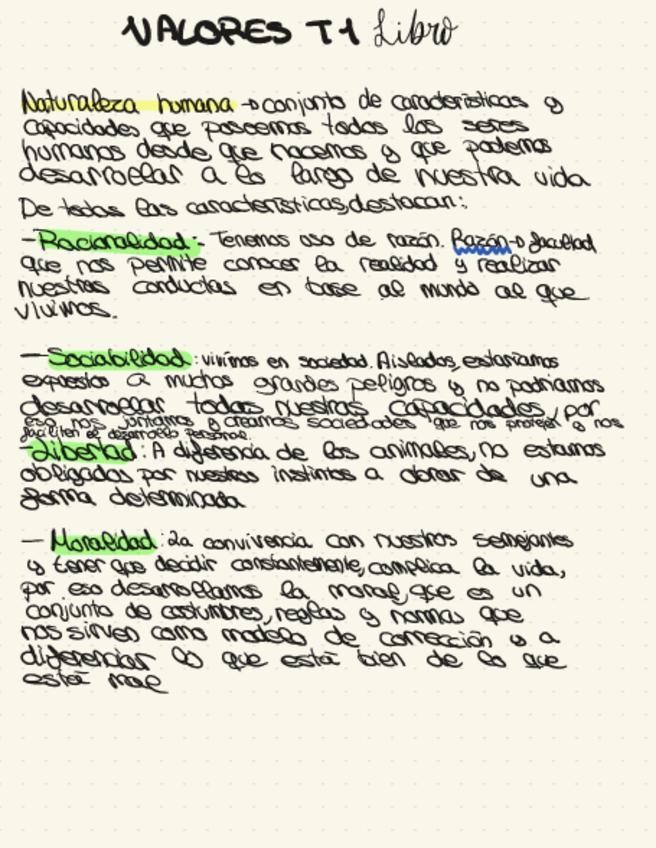 VALORES T1 Libro
Naturaleza humana → conjunto de características y
capacidades que poseemos todos los seres
humanos desde que nacemos y que podemos
desarrollar a lo largo de nuestra vida
De todas las características, destacan:
- Racionalidad: - Tenemos uso de razón. Razón → facultad
que nos permite conocer la realidad y realizar
nuestras conductas en base al mundo al que
vivimos.
- Sociabilidad: vivimos en sociedad. Aislados, estaríamos
expuestos a muchos grandes peligros y no podríamos
desarrollar todas nuestras capacidades, por
eso nos juntamos y creamos sociedades que nos protejen y nos
faciliten el desarrollo personal.
- Libertad: A diferencia de los animales, no estamos
obligados por nuestros instintos a obrar de una
forma determinada
- Moralidad: La convivencia con nuestros semejantes
y tener que decidir constantemente, complica la vida,
por eso desarrollamos la moral, que es un
conjunto de costumbres, reglas y normas que
nos sirven como modelo de corrección y a
diferenciar lo que está bien de lo que
está mal